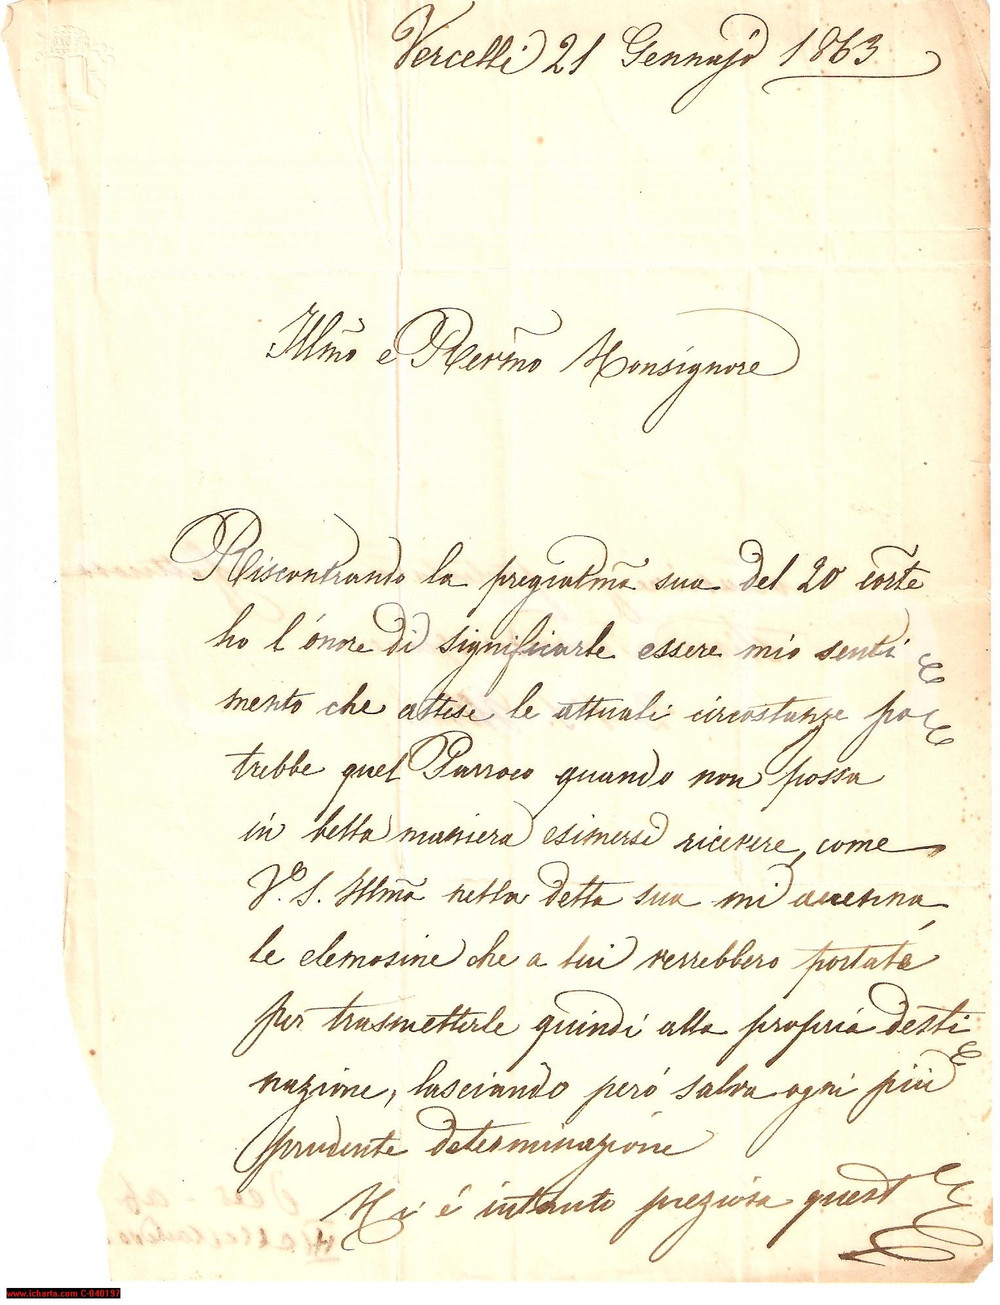 Vercelli 21 Gennajo 1863
Illmo e Revmo Monsignore
Riscontrando la pregiatma sua del 20 corrte
ho l'onore di significarle essere mio senti
mento che attese le attuali circostanze po
trebbe quel Parroco quando non possa
in bella maniera esimersi ricevere, come
V.a S. Illma nella detta sua mi accenna,
le elemosine che a lui verrebbero portate
per trasmetterle quindi alla propria desti
nazione, lasciando però salva ogni più
prudente determinazione
Mi é intanto preziosa quest
www.icharta.com C-040197